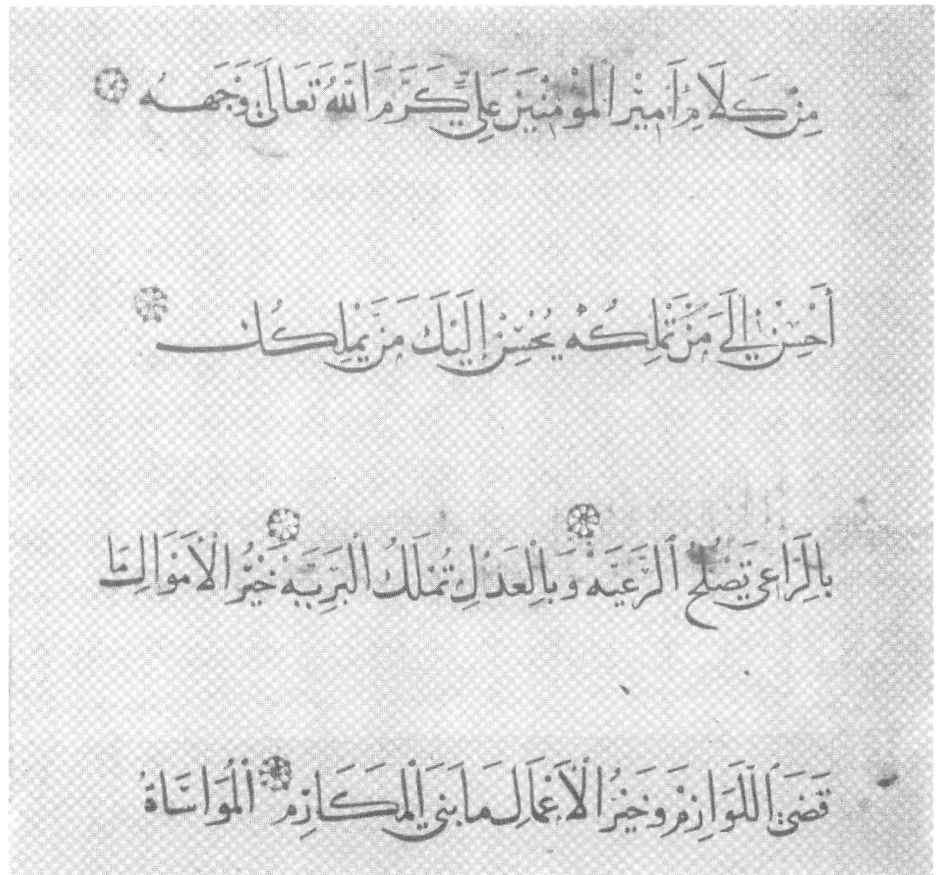 مِنْ كَلَامِ أَمِيْرِ الْمُؤْمِنِيْنَ عَلِيٍّ كَرَّمَ اللّٰهُ تَعَالَى وَجْهَهُ
أَحْسِنْ إِلَى مَنْ تَمْلِكُهُ يُحْسِنْ إِلَيْكَ مَنْ يَمْلِكُكَ
بِالرَّاعِي تَصْلُحُ الرَّعِيَّه وَبِالْعَدْلِ تُمْلَكُ الْبَرِيَّه خَيْرُ الْأَمْوَالِ مَا
قَضَى اللَّوَازِمْ وَخَيْرُ الْأَعْمَالِ مَا بَنَى الْمَكَارِمْ الْمُوَاسَاةُ